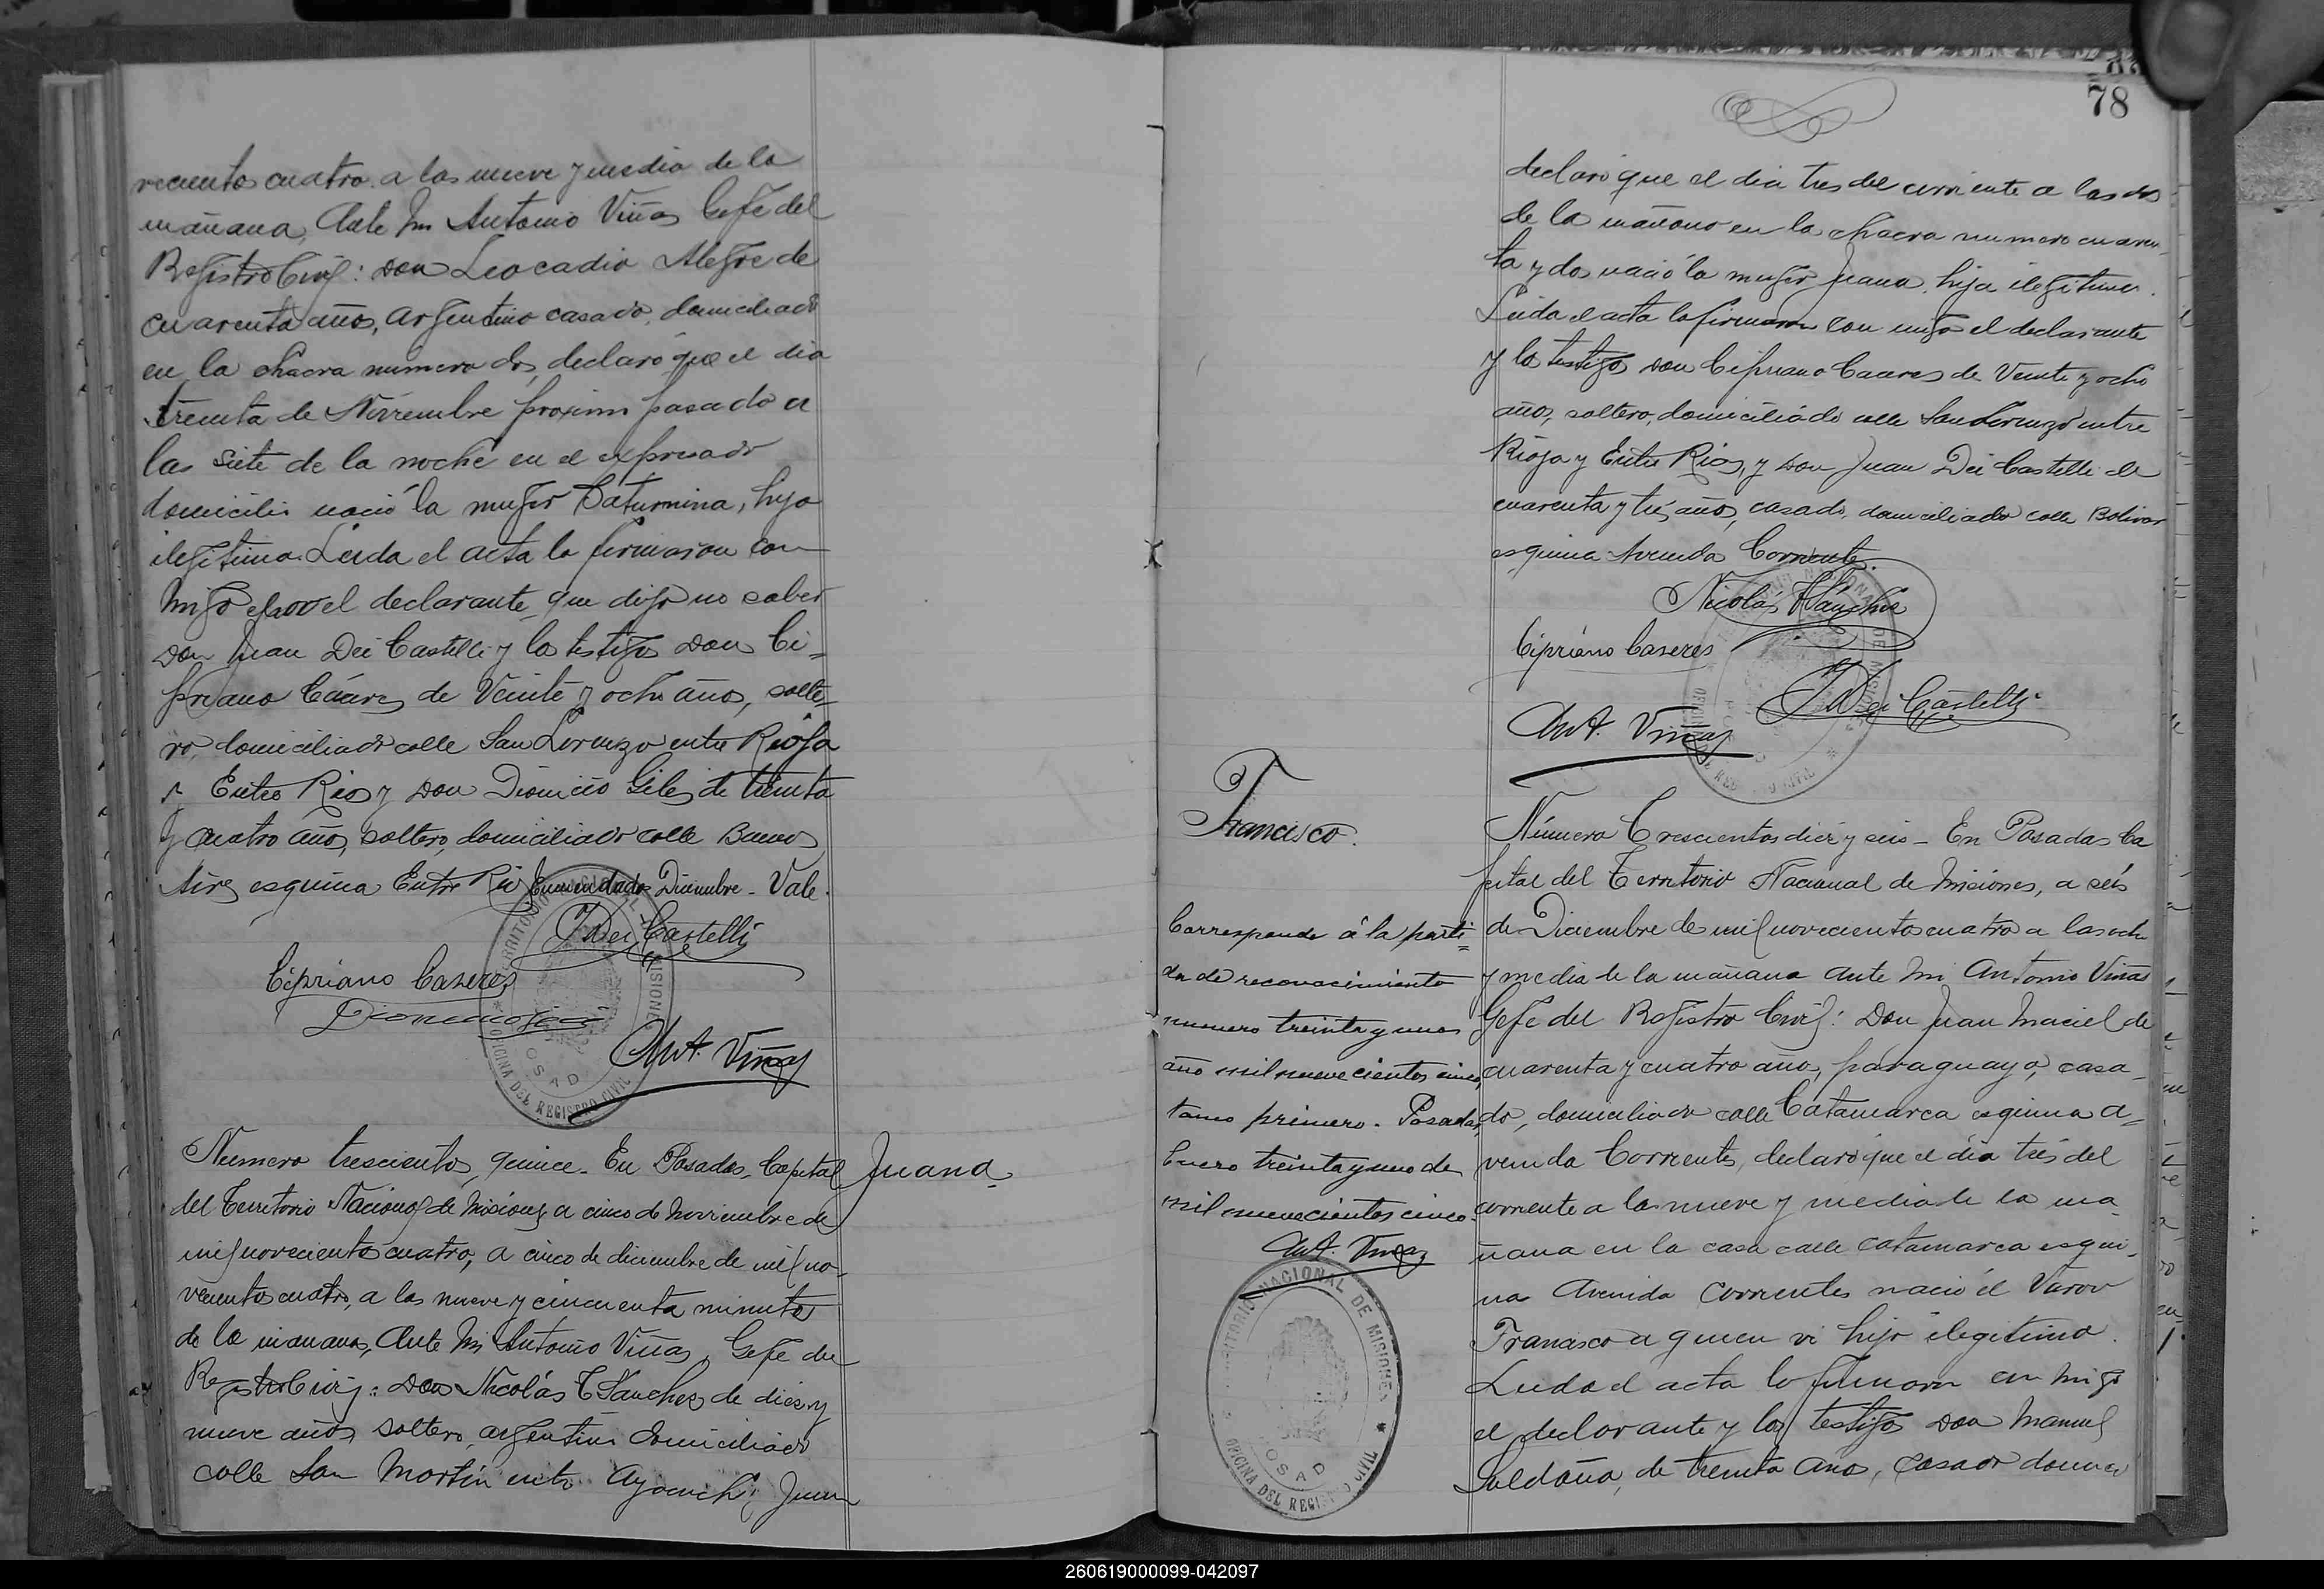 vecientos cuatro. a las nueve y media de la
mañana, Ante mi Antonio Viñas Gefe del
Registro Civil: Don Leocadio Alegre de
cuarenta años, argentino casado, domiciliado
en la chacra numero dos, declaró que el dia
treinta de Noviembre proximo pasado a
las siete de la noche en el expresado
domicilio nació la mujer Saturnina, hija
ilegitima. Leida el acta la firmaron con
migo por el declarante que dijo no saber
Don Juan Dei Castelli y los testigos Don Ci=
priano Cáceres de Veinte y ocho años, solte-
ro, domiciliado calle San Lorenzo entre Rioja
y Entre Rios y Don Dionicio Giles de treinta
y cuatro años, soltero, domiciliado calle Buenos
Aires esquina Entre Rios Enmendado Diciembre - Vale.
J Dei Castelli
Cipriano Caseres
Ant. Viñas
TERRITORIO NACIONAL DE MISIONES
OFICINA DEL REGISTRO CIVIL
POSADAS
Juana
Numero trescientos quince - En Posadas, Capital
del Territorio Nacional de Misiones a cinco de Noviembre de
mil novecientos cuatro, a cinco de diciembre de mil no-
vecientos cuatro, a las nueve y cincuenta minutos
de la manana, Ante Mi Antonio Viñas, Gefe del
Registro Civil: Don Nicolás T Sanchez de diez y
nueve años, soltero, argentino domiciliado
calle San Martin entre Ayacucho y Junin
78
declaró que el dia tres del corriente a las dos
de la mañana en la chacra numero cuaren-
ta y dos nació la mujer Juana, hija ilegitima.
Leida el acta la firmaron con migo el declarante
y los testigos Don Cipriano Caceres de Veinte y ocho
años, soltero, domiciliado calle San Lorenzo entre
Rioja y Entre Rios, y Don Juan Dei Castelli de
cuarenta y tres años, casado, domiciliado calle Bolivar
esquina Avenida Corrientes.
Nicolás T Sanchez
Cipriano Caseres
J Dei Castelli
Ant. Viñas
Francisco.
Corresponde á la parti=
da de reconocimiento
numero treinta y uno
año mil nuevecientos cinco,
tomo primero. Posadas,
Enero treinta y uno de
mil nuevecientos cinco.
Ant. Viñas
TERRITORIO NACIONAL DE MISIONES
OFICINA DEL REGISTRO CIVIL
POSADAS
Número Trescientos diez y seis - En Posadas Ca
pital del Territorio Nacional de Misiones, a seis
de Diciembre de mil novecientos cuatro a las ocho
y media de la mañana ante mi Antonio Viñas
Gefe del Registro Civil: Don Juan Maciel de
cuarenta y cuatro años, paraguayo, casa-
do, domiciliado calle Catamarca esquina A=
venida Corrientes, declaró que el dia tres del
corriente a las nueve y media de la ma
ñana en la casa calle Catamarca esqui-
na Avenida Corrientes nació el Varon
Francisco a quien vi hijo ilegitimo.
Leida el acta la firmaron con migo
el declarante y los testigos Don Manuel
Saldaña, de treinta años, casado domici
260619000099-042097